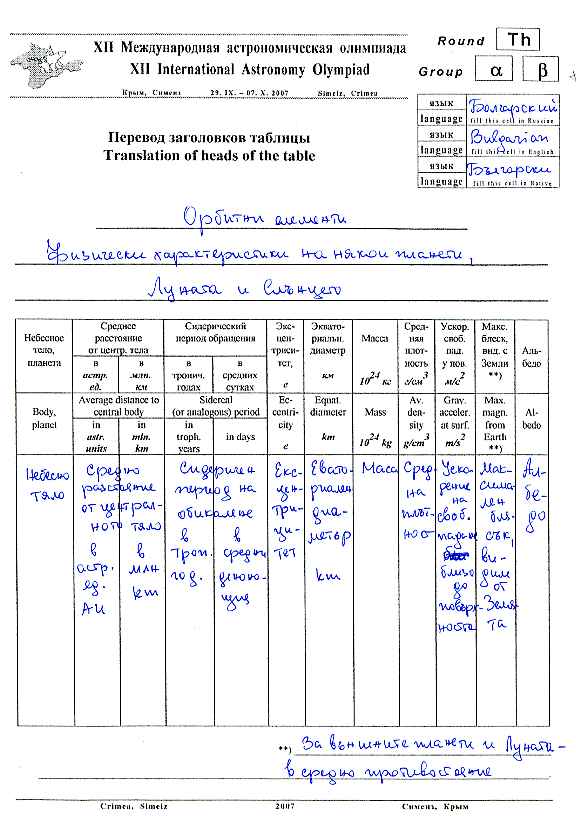 XII Международная астрономическая олимпиада
XII International Astronomy Olympiad
Крым, Симеиз 29. IX. – 07. X. 2007 Simeiz, Crimea
Round Th
Group α β
язык
language
Болгарский
fill this cell in Russian
язык
language
Bulgarian
fill this cell in English
язык
language
Български
fill this cell in Native
Перевод заголовков таблицы
Translation of heads of the table
Орбитни елементи
Физически характеристики на някои планети,
Луната и Слънцето
Небесное тело, планета
Среднее расстояние от центр. тела
в астр. ед.
в млн. км
Сидерический период обращения
в тропич. годах
в средних сутках
Экс-цен-триси-тет, e
Эквато-риальн. диаметр км
Масса 10²⁴ кг
Сред-няя плот-ность г/см³
Ускор. своб. пад. у пов. м/с²
Макс. блеск, вид. с Земли **)
Аль-бедо
Body, planet
Average distance to central body
in astr. units
in mln. km
Sidereal (or analogous) period
in troph. years
in days
Ec-centri-city e
Equat. diameter km
Mass 10²⁴ kg
Av. den-sity g/cm³
Grav. acceler. at surf. m/s²
Max. magn. from Earth **)
Al-bedo
Небесно тяло
Средно разстояние от централ-ното тяло
в астр. ед. АИ
в млн km
Сидеричен период на обикаляне
в троп. год.
в средни деноно-щия
Екс-цен-три-ци-тет
Еквато-риален диа-метър km
Маса
Сред-на плът-ност
Уско-рение на своб. падане близо до повърх-ността
Мак-сима-лен бля-сък, ви-дим от Земя-та
Ал-бе-до
**) За външните планети и Луната-
в средно противостояние
Crimea, Simeiz 2007 Симеиз, Крым